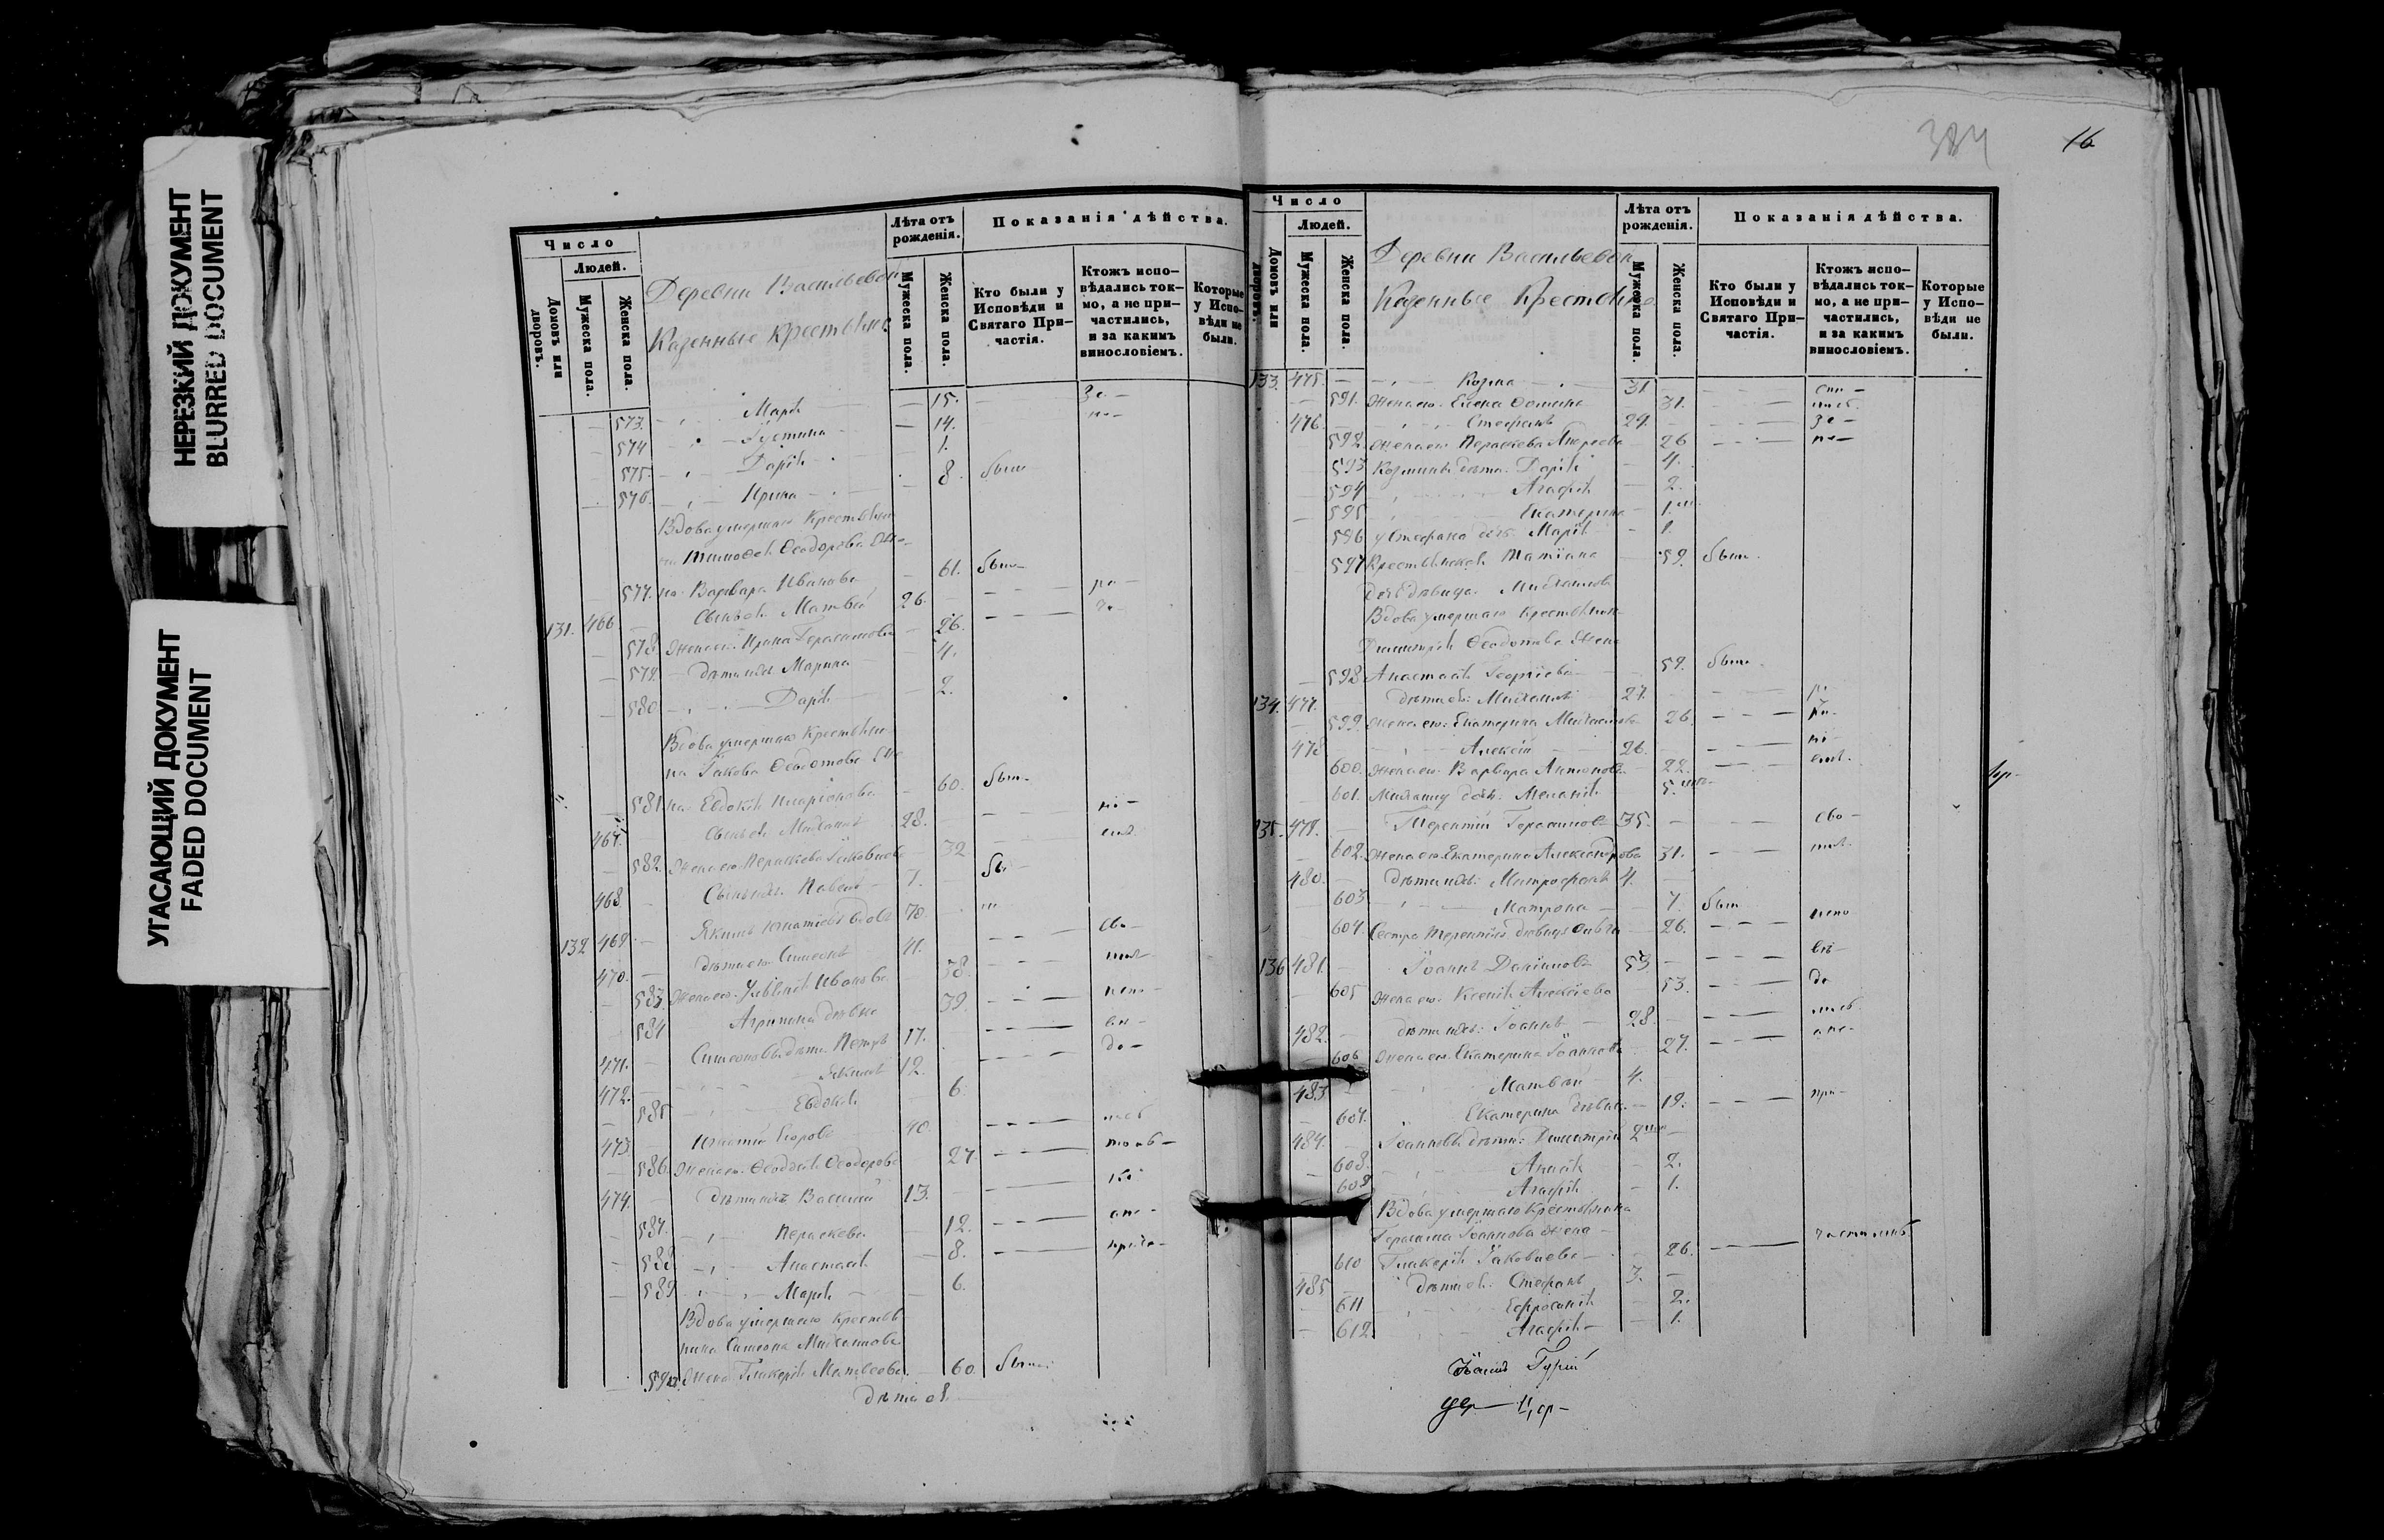 НЕРЕЗКИЙ ДОКУМЕНТ
BLURRED DOCUMENT
УГАСАЮЩИЙ ДОКУМЕНТ
FADED DOCUMENT
Число
Людей.
Домовъ или дворовъ.
Мужеска пола.
Женска пола.
Деревни Васильевой
Казенные крестьяне
Лѣта отъ рожденія.
Мужеска пола.
Женска пола.
Показанія дѣйства.
Кто были у Исповѣди и Святаго Причастія.
Ктожъ исповѣдались токмо, а не причастились, и за какимъ винословіемъ.
Которые у Исповѣди не были.
573. Марія 15.
574 Іустина 14.
575. Дарія 1.
576. Ирина 8. были
Вдова умершаго Крестьяни-
на Тимоѳея Ѳеодорова Же-
577. на Варвара Иванова 61. были
131. 466. Сынъ ея Матвѣй 26.
578. Жена его Ирина Герасимова 26.
579. дѣти ихъ Марина 4.
580. Дарія 2.
Вдова умершаго Крестьяни-
на Іакова Ѳеодотова Же-
581. на Евдокія Иларіонова 60. были
467. Сынъ ея Михаилъ 28.
582. Жена его Параскева Іаковлева 32
468 Сынъ ихъ Павелъ 7.
132 469. Якимъ Игнатіевъ вдовъ 70.
470. дѣти его Симеонъ 41.
583. Жена его Иванова 38.
584 Агрипина дѣвка 39.
471. Симеоновы дѣти Петръ 17.
472. Якимъ 12.
585 Евдокія 6.
473. Игнатій Егоровъ 40.
586. Жена его Ѳеодосія Ѳеодорова 27
474. Дѣти ихъ Василій 13.
587. Параскева 12.
588 Анастасія 8.
589 Марія 6.
Вдова умершаго Крестья-
нина Симеона Михаилова
590. Жена Гликерія Матвеева 60. были
дѣти ея
384
16
Число
Людей.
Домовъ или дворовъ.
Мужеска пола.
Женска пола.
Деревни Васильевой
Казенные Крестьяне
Лѣта отъ рожденія.
Мужеска пола.
Женска пола.
Показанія дѣйства.
Кто были у Исповѣди и Святаго Причастія.
Ктожъ исповѣдались токмо, а не причастились, и за какимъ винословіемъ.
Которые у Исповѣди не были.
133. 475. Козма 31
591. Жена его Елена Ѳомина 31.
476. Стефанъ 29.
592. Жена его Параскева Андреева 26
593 Козмины дѣти Дарія 4.
594 Агафія 2.
595 Екатерина 1.
596 у Стефана дочь Марія 1.
597 Крестьянская Татіана 59. были
дочь дѣвица Михаилова
Вдова умершаго Крестьянина
Димитрія Ѳеодотова Жена
598 Анастасія Георгіева 59. были
134. 477. Дѣти ея: Михаилъ 27.
599. Жена его: Екатерина Михаилова 26.
478 Алексій 26.
600. Жена его Варвара Антонова 22.
601. Михаилу дочь Меланія 5.
135. 479. Терентій Герасимовъ 35.
602. Жена его Екатерина Александрова 31.
480. Дѣти ихъ: Митрофанъ 4.
603 Матрона 7. были
604. Сестра Терентія дѣвица 26.
136 481. Іоаннъ Даніиловъ 53
605 Жена его: Ксенія Алексіева 53.
482. дѣти ихъ: Іоаннъ 28
606 Жена его Екатерина Іоаннова 27.
483 Матвѣй 4.
607. Екатерина дѣвица 19.
484. Іоанновы дѣти: Димитрій 2
608. Анисія 2.
609 Агафія 1.
Вдова умершаго Крестьянина
Герасима Іоаннова Жена
610 Гликерія Іаковлева 26. частилась
485 Дѣти ея: Стефанъ 3.
611 Ефросинія 2.
612 Агафія 1.
Гурій